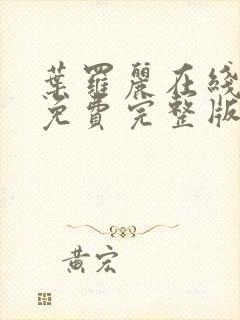 葉羅麗在綫
免費完整版
黃宏